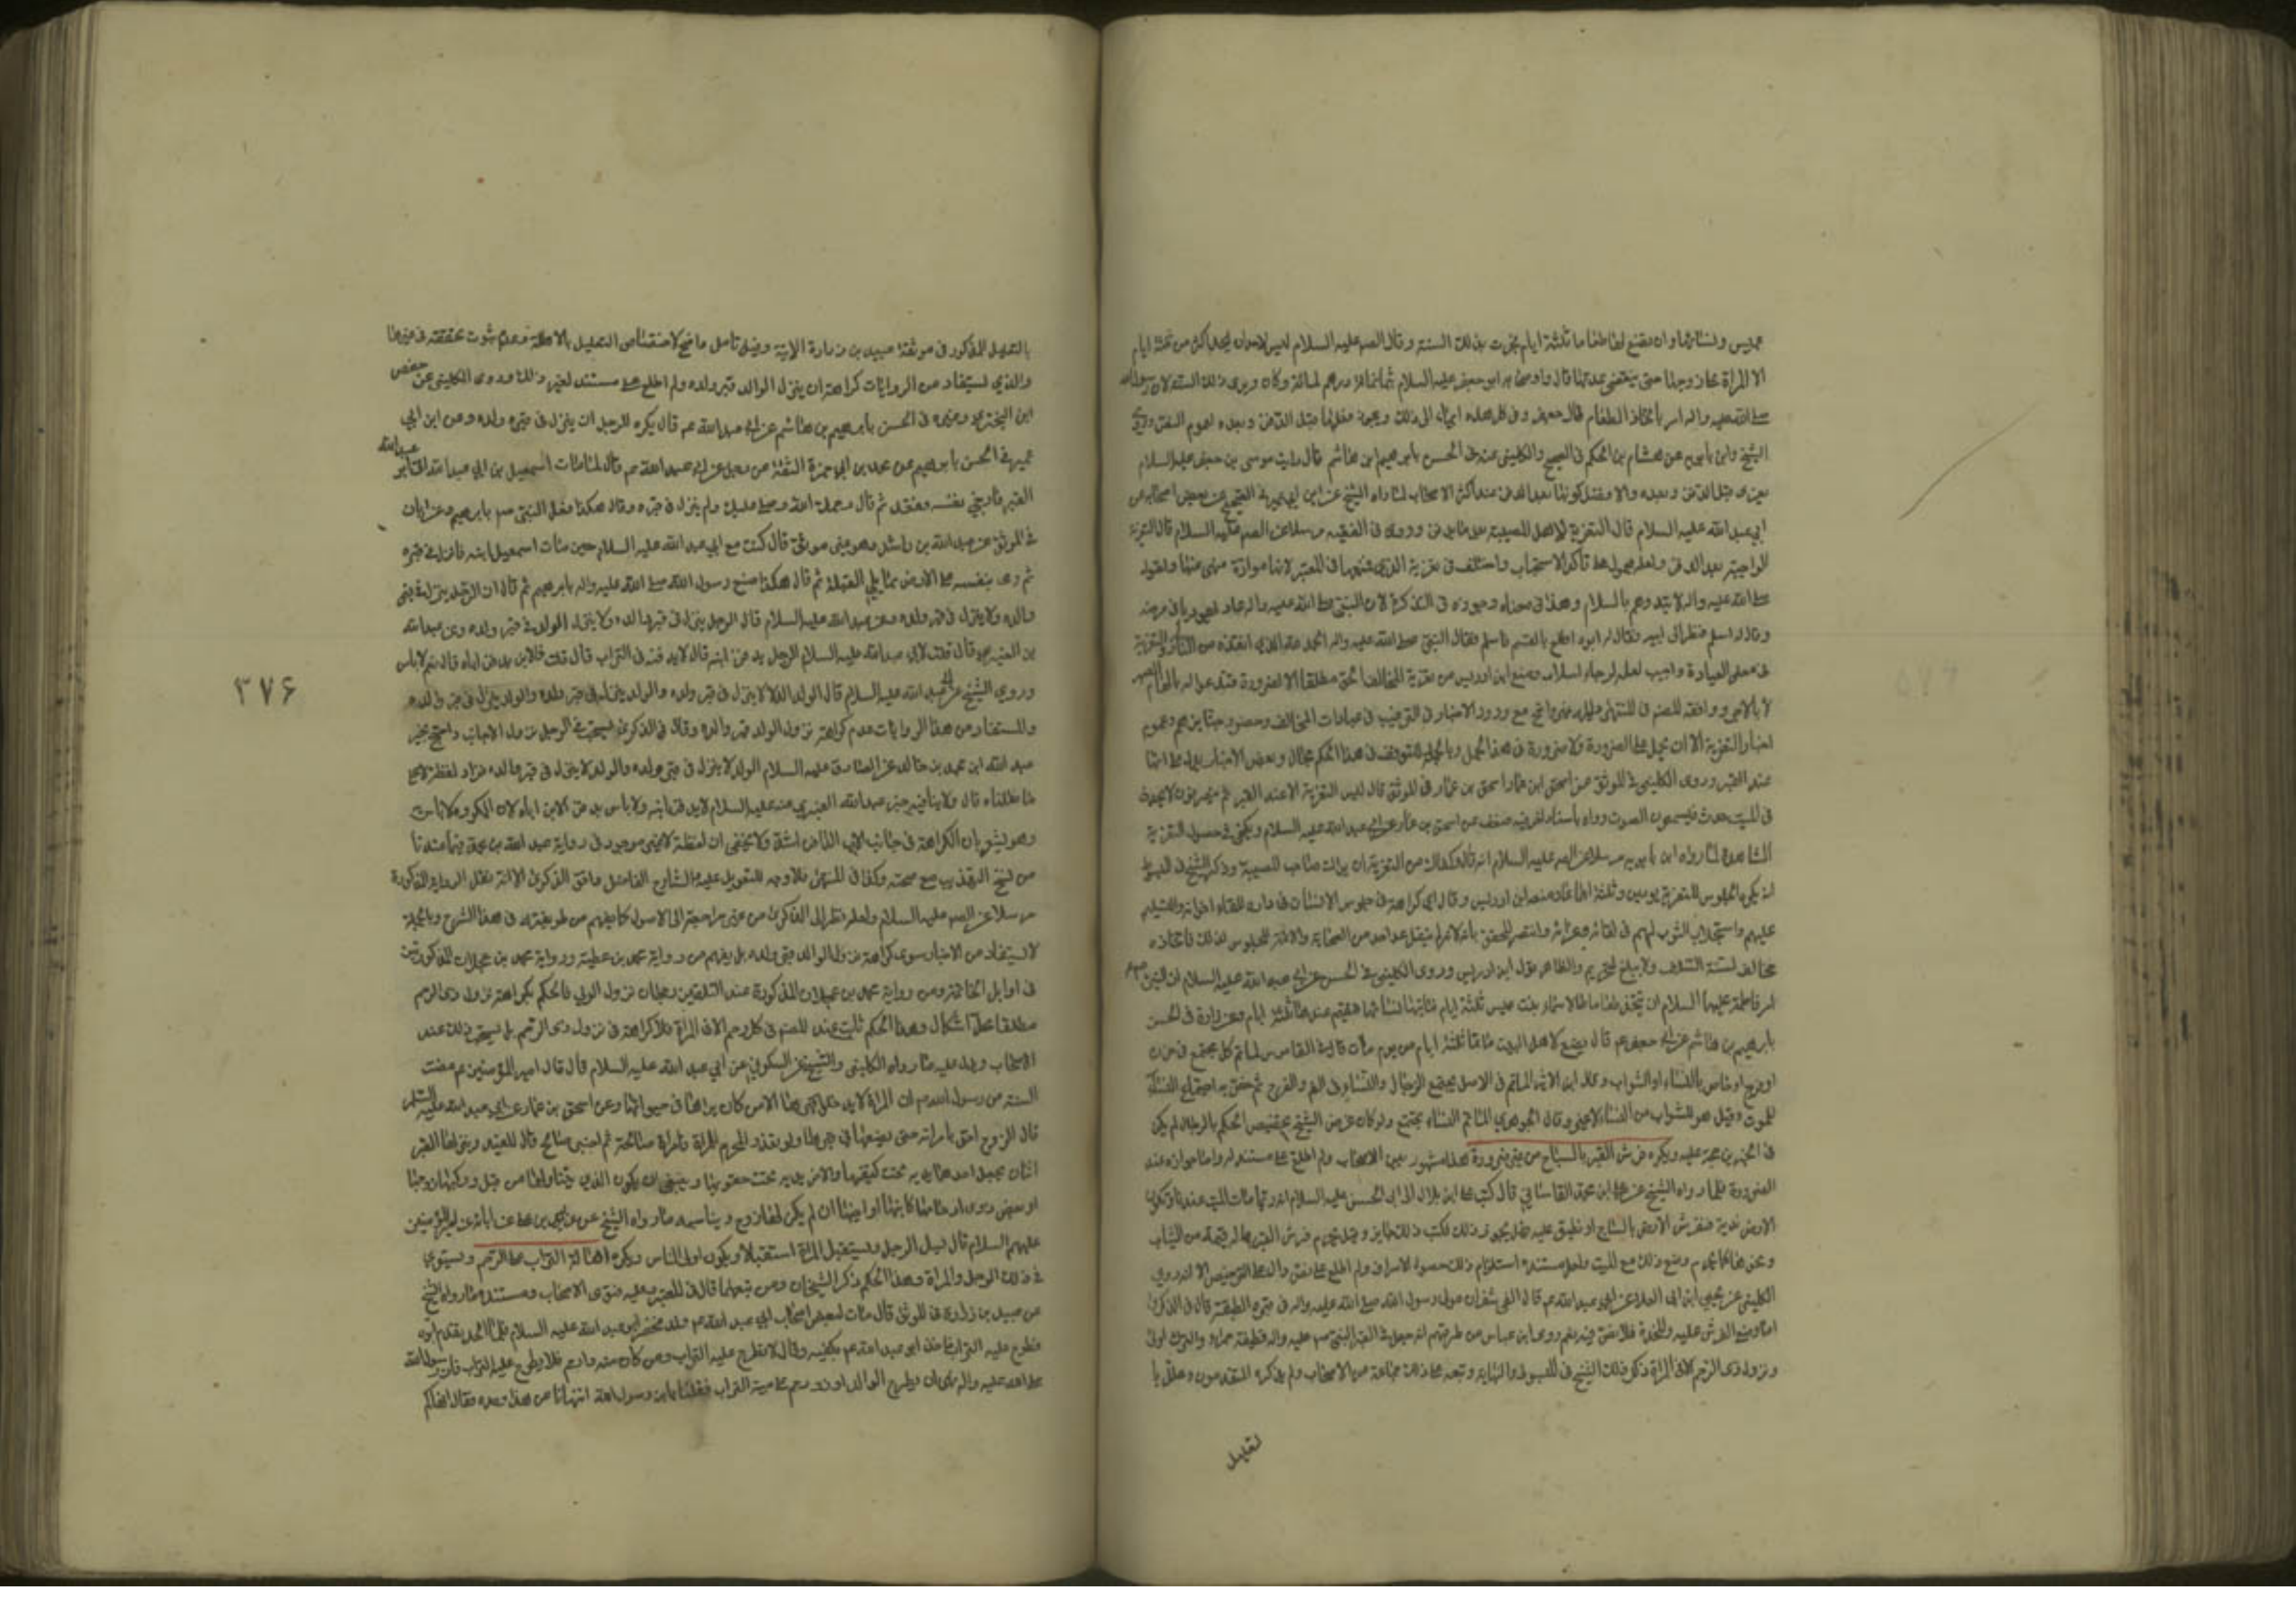 عميس ونسائها وان تصنع لها طعاما ثلثة ايام فجرت بذلك السنة وقال الصم عليه السلام ليس لاحد ان يحد اكثر من ثلثة ايام
الا المراة على زوجها حتى ينقضي عدتها قال واوصى ابو جعفر عليه السلام بثمانمائة درهم لماتمه وكان ويرى ذلك السنة لان رسول الله
صلى الله عليه واله امر باتخاذ الطعام لال جعفر وفي كل هذه ايماء الى ذلك ويجوز فعلها قبل الدفن وبعده لعموم النص وروى
الشيخ وابن بابويه عن هشام بن الحكم في الصحيح والكليني عنه في الحسن بابرهيم ابن هاشم قال رايت موسى بن جعفر عليه السلام
يعزى قبل الدفن وبعده والافضل كونها بعد الدفن عند اكثر الاصحاب لما رواه الشيخ عن ابن ابي عمير في الصحيح عن بعض اصحابه عن
ابي عبد الله عليه السلام قال التعزية لاهل المصيبة بعد ما يدفن وروى في الفقيه مرسلا عن الصم عليه السلام قال التعزية
الواجبة بعد الدفن ولعله محمول على تاكد الاستحباب واختلف في تعزية الذمي فمنعها في المعتبر لانها موادة منهى عنها ولقوله
صلى الله عليه واله لا تبدوهم بالسلام وهذا في معناه وجوزه في التذكرة لان النبى صلى الله عليه واله عاد يهوديا في مرضه
وقال له اسلم فنظر الى ابيه فقال له ابوه اطع ابا القسم فاسلم فقال النبي صلى الله عليه واله الحمد لله الذي انقذه من النار والتعزية
في معنى العيادة واجيب لعله لرجاء اسلامه ومنع ابن ادريس من تعزية المخالف الحق مطلقا الا لضرورة فيدعو له بالهام الصبر
لا بالاجر ووافقه المصم في المنتهى
اخبار التعزية الا ان يحمل على الضرورة ولا ضرورة في هذا الحمل وبالجملة للتوقف في هذا الحكم مجال وبعض الاخبار يدل على انها
عند القبر وروى الكليني في الموثق عن اسحق ابن عمار قال ليس التعزية الا عند القبر ثم ينصرفون لا يحدث
في الميت حدث فيسمعون الصوت ورواه باسناد اخر فيه ضعف عن اسحق بن عمار عن ابي عبد الله عليه السلام ويكفي في حصول التعزية
المشاهدة لما رواه ابن بابويه مرسلا عن الصم عليه السلام انه قال كفاك من التعزية ان يراك صاحب المصيبة وذكر الشيخ في المبسوط
انه يكره الجلوس للتعزية يومين وثلثة اجماعا ومنعه ابن ادريس وقال اي كراهة في جلوس الانسان في داره للقاء اخوانه والتسليم
عليهم واستجلاب الثواب لهم في لقائه وعزائه وانتصر المحقق بانه لم ينقل عن احد من الصحابة والائمة الجلوس لذلك فاتخاذه
مخالف لسنة السلف ولا يبلغ التحريم والظاهر قول ابن ادريس وروى الكليني في الحسن عن ابي عبد الله عليه السلام ان النبي صم
امر فاطمة عليها السلام ان تتخذ طعاما لاسماء بنت عميس ثلثة ايام فتاتيها نساءها فتقيم عندها ثلثة ايام وعن زرارة في الحسن
بابرهيم بن هاشم عن ابي جعفر عم قال يصنع لاهل الميت ماتما ثلثة ايام من يوم مات قال في القاموس الماتم كل مجتمع في حزن
او فرح او خاص بالنساء او الشواب وقال ابن الاثير الماتم في الاصل مجتمع الرجال والنساء في الغم والفرح ثم خص به اجتماع النساء
للموت وقيل هو للشواب من النساء لا غير وقال الجوهري الماتم النساء يجتمع
ويكره فرش القبر بالساج من غير ضرورة هذا مشهور بين الاصحاب ولم اطلع على مستند له واما جوازه عند
الضرورة فلما رواه الشيخ عن علي ابن محمد القاساني قال كتب علي ابن بلال الى ابي الحسن عليه السلام انه ربما مات الميت عندنا وتكون
الارض ندية فنفرش الارض بالساج او نطبق عليه فهل يجوز ذلك فكتب ذلك جايز وقيل يحرم فرش القبر بما له قيمة من الثياب
الكليني عن يحيى ابن ابي العلاء عن ابي عبد الله عم قال القى شقران مولى رسول الله صلى الله عليه واله في قبره القطيفة قال في الذكرى
اما وضع الفرش عليه والمخدة فلا نص فيه نعم روى ابن عباس من طرقهم انه جعل في قبر النبي صم عليه واله قطيفة حمراء والترك اولى
ونزول ذى الرحم الا في المراة ذكر ذلك الشيخ في المبسوط والنهاية وتبعه على ذلك جماعة من الاصحاب ولم يذكره المتقدمون وعلل با
لتعليل
٣٧۶
بالتعليل المذكور في موثقة عبيد بن زرارة الاتية وفيه تامل
والذي يستفاد من الروايات كراهة ان ينزل الوالد قبر ولده ولم اطلع على مستند لغير ذلك وروى الكليني عن حفص
ابن البختري وغيره في الحسن بابرهيم بن هاشم عن ابي عبد الله عم قال يكره للرجل ان ينزل في قبر ولده وعن ابن ابي
عمير في الحسن بابرهيم عن محمد بن ابي حمزة الثقة عن رجل عن ابي عبد الله عم قال لما مات اسمعيل بن ابي عبد الله اتى ابو عبد الله
القبر فارخى نفسه فقعد ثم قال رحمك الله وصلى عليك ولم ينزل في قبره وقال هكذا فعل النبي صم بابرهيم وعن ابان
في الموثق عن عبد الله بن راشد قال كنت مع ابي عبد الله عليه السلام حين مات اسمعيل ابنه فانزل في قبره
ثم رمى بنفسه على الارض مما يلي القبلة ثم قال هكذا صنع رسول الله صلى الله عليه واله بابرهيم ثم قال ان الرجل ينزل في قبر
والده ولا ينزل في قبر ولده وعن عبد الله عليه السلام قال الرجل ينزل في قبر والده ولا ينزل الوالد في قبر ولده وعن عبد الله
بن العنبري قال قلت لابي عبد الله عليه السلام الرجل يدفن ابنه قال لا يدفنه في التراب قال قلت فالابن يدفن اباه قال نعم لا باس
وروى الشيخ عن ابي عبد الله عليه السلام قال الوالد لا ينزل في قبر ولده والولد ينزل في قبر والده
والمستفاد من هذه الروايات عدم كراهة نزول الولد قبر والده وقال في الذكرى
عبد الله ابن محمد بن خالد عن الصادق عليه السلام الوالد لا ينزل في قبر ولده والولد لا ينزل في قبر والده فزاد لفظة لا
قال ولا ينافيه خبر عبد الله العنبري عنه عليه السلام لا يدفن ابنه ولا باس بدفن الابن اباه
وهو يشعر بان الكراهة في جانب الاب الدافن اشد ولا يخفى ان لفظة لا غير موجود في رواية عبد الله بن محمد فيما عندنا
من نسخ التهذيب مع صحته وكذا في المنتهى فلا وجه للتعويل عليه والشارح الفاضل وافق الذكرى الا انه نقل الرواية المذكورة
مرسلا عن الصم عليه السلام ولعله نظر الى الذكرى من غير مراجعة الى الاصول كما يفهم من طريقته في هذا الشرح وبالجملة
لا يستفاد من الاخبار سوى كراهة نزول الوالد قبر ولده بل يفهم من رواية محمد بن عطية ورواية محمد بن عجلان المذكورتين
في اوايل الخاتمة ومن رواية محمد بن عجلان المذكورة عند التلقين رجحان نزول الولي فالحكم بكراهة نزول ذى الرحم
مطلقا محل اشكال وهذا الحكم ثابت عند المصم في كل رحم الا في المراة فلا كراهة في نزول ذى الرحم بل يستحب ذلك عند
الاصحاب ويدل عليه ما رواه الكليني والشيخ عن السكوني عن ابي عبد الله عليه السلام قال قال امير المؤمنين عم مضت
السنة من رسول الله صم ان المراة لا يدخل قبرها الا من كان يراها في حيوتها وعن اسحق بن عمار عن ابي عبد الله عليه السلام
قال الزوج احق بامراته حتى يضعها في قبرها ولو تعذر المحرم فامراة صالحة ثم اجنبي صالح قال المفيد وينزلها القبر
اثنان يجعل احدهما يديه تحت كتفيها والاخر يديه تحت حقويها وينبغي ان يكون الذي يتناولها من قبل وركيها زوجها
او بعض ذوى ارحامها كابنها او اخيها او ابيها ان لم يكن لها زوج ويناسبه ما رواه الشيخ عن زيد بن علي عن ابائه عن امير المؤمنين
عليهم السلام قال يسل الرجل ويستقبل المراة استقبالا ويكون اولى الناس ويكره اهالة التراب على الرحم ويستوي
في ذلك الرجل والمراة وهذا الحكم ذكره الشيخان ومن تبعهما قال في المعتبر وعليه فتوى الاصحاب ومستنده ما رواه الشيخ
عن عبيد بن زرارة في الموثق قال مات لبعض اصحاب ابي عبد الله عم ولد فحضر ابو عبد الله عليه السلام فلما الحد تقدم ابوه
فطرح عليه التراب فاخذ ابو عبد الله عم بكفيه وقال لا تطرح عليه التراب ومن كان منه ذا رحم فلا يطرح عليه التراب فان رسول الله
صلى الله عليه واله نهى ان يطرح الوالد او ذو رحم على ميته التراب فقلنا يابن رسول الله اتنهانا عن هذا وحده فقال انهاكم